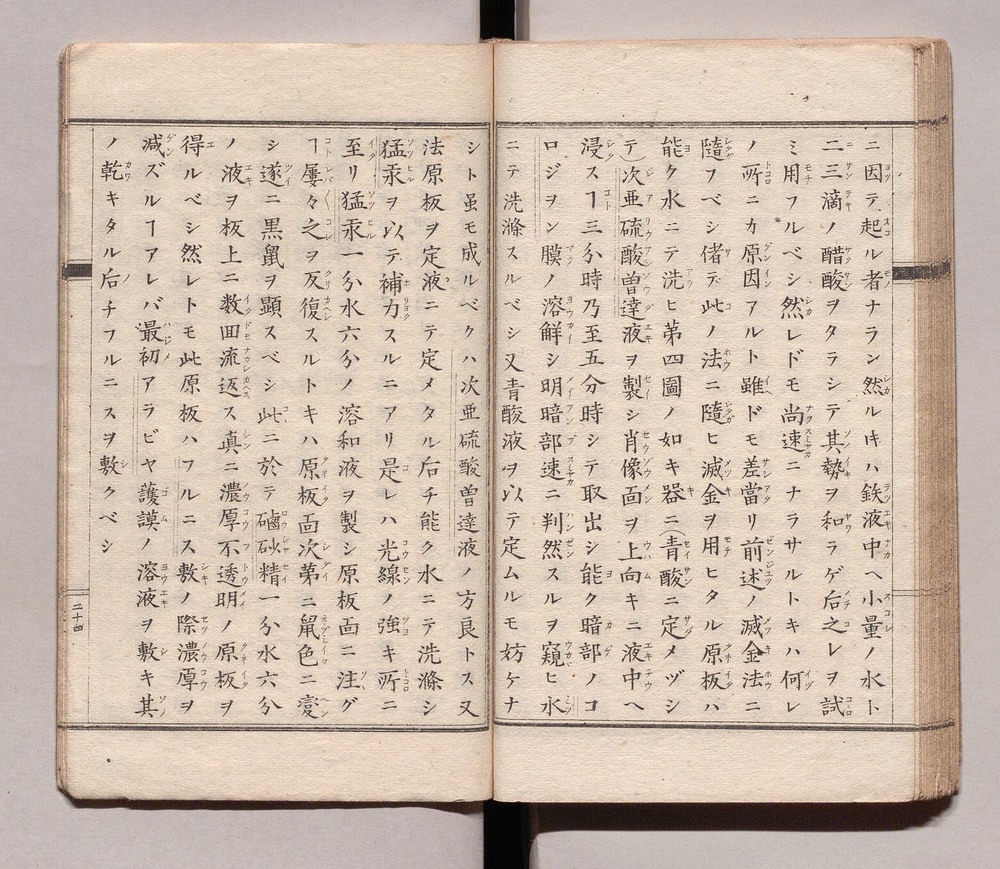 ニ因テ起ル者ナラン然ル𪜈ハ鉄液中ヘ小量ノ水ト
二三滴ノ醋酸ヲタラシテ其勢ヲ和ラゲ后之レヲ試
ミ用フルベシ然レドモ尚速ニナラサルトキハ何レ
ノ所ニカ原因アルト雖ドモ差當リ前述ノ滅金法ニ
隨フベシ偖テ此ノ法ニ隨ヒ滅金ヲ用ヒタル原板ハ
能ク水ニテ洗ヒ第四圖ノ如キ器ニ青酸ニ定メヅシ
テ次亜硫酸曽達液ヲ製シ肖像面ヲ上向キニ液中ヘ
浸スヿ三分時乃至五分時シテ取出シ能ク暗部ノコ
ロジヲン膜ノ溶解シ明暗部速ニ判然スルヲ窺ヒ水
ニテ洗滌スルベシ又青酸液ヲ以テ定ムルモ妨ケナ
シト虽モ成ルベクハ次亜硫酸曽達液ノ方良トス又
法原板ヲ定液ニテ定メタル后チ能ク水ニテ洗滌シ
猛汞ヲ以テ補力スルニアリ是レハ光線ノ強キ所ニ
至リ猛汞一分水六分ノ溶和液ヲ製シ原板面ニ注グ
ヿ屡々之ヲ反復スルトキハ原板面次第ニ鼠色ニ変
シ遂ニ黒鼠ヲ顕スベシ此ニ於テ磠砂精一分水六分
ノ液ヲ板上ニ数回流返ス真ニ濃厚不透明ノ原板ヲ
得ルベシ然レトモ此原板ハフルニス敷ノ際濃厚ヲ
減ズルヿアレバ最初アラビヤ護謨ノ溶液ヲ敷キ其
ノ乾キタル后チフルニスヲ敷クベシ
二十四